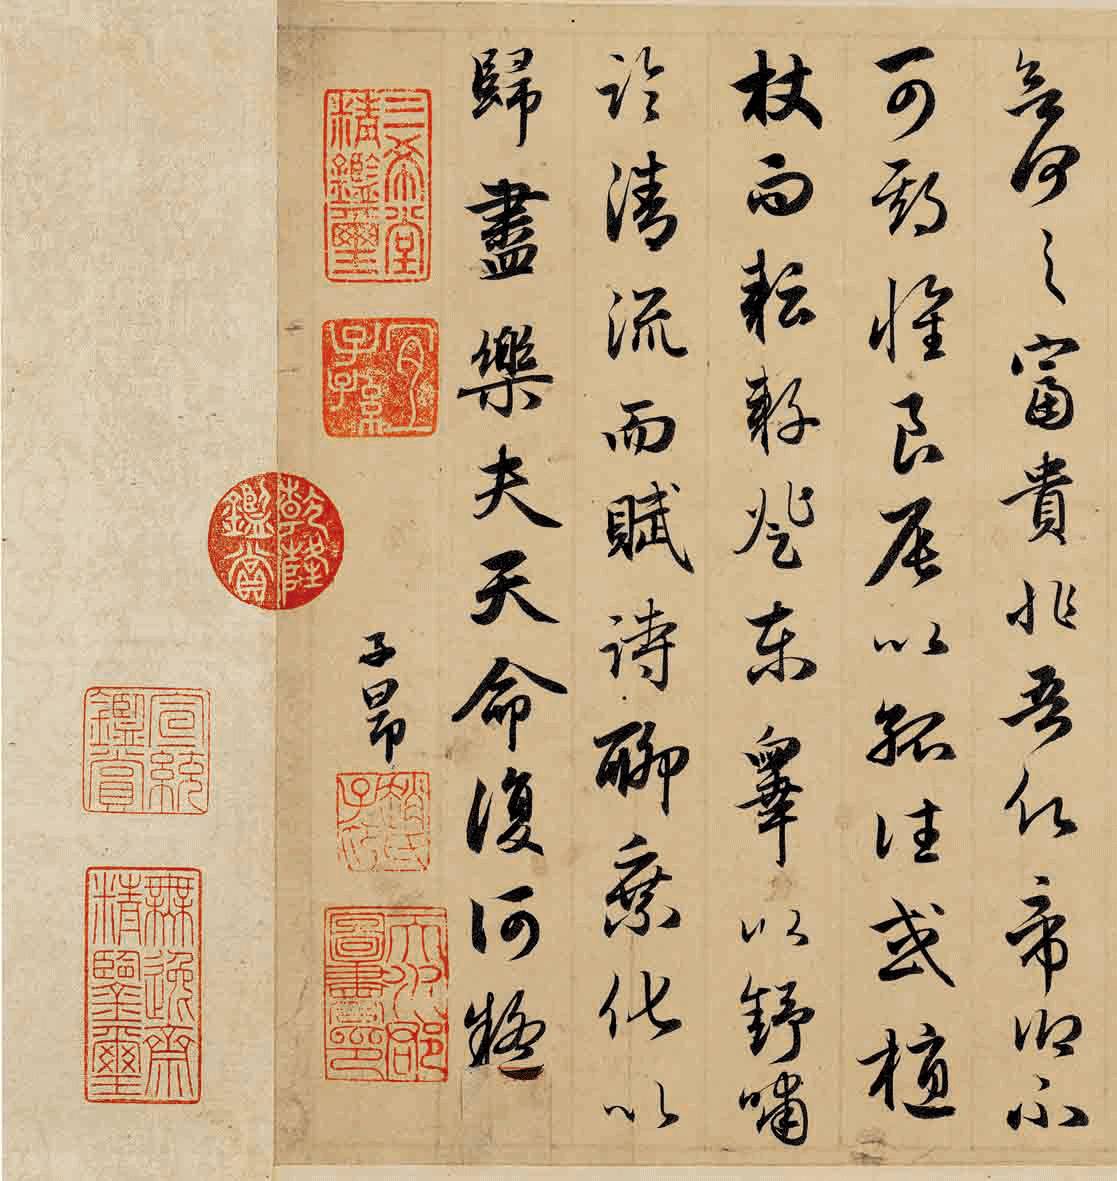 何之富貴非吾願帝鄉不
可期懷良辰以孤往或植
杖而耘耔登東皋以舒嘯
臨清流而賦詩聊乘化以
歸盡樂夫天命復何疑
子昂
三希堂精鑑璽
宜子孫
趙氏子昂
天水郡圖書印
乾隆鑑賞
宣統鑑賞
無逸齋精鑑璽